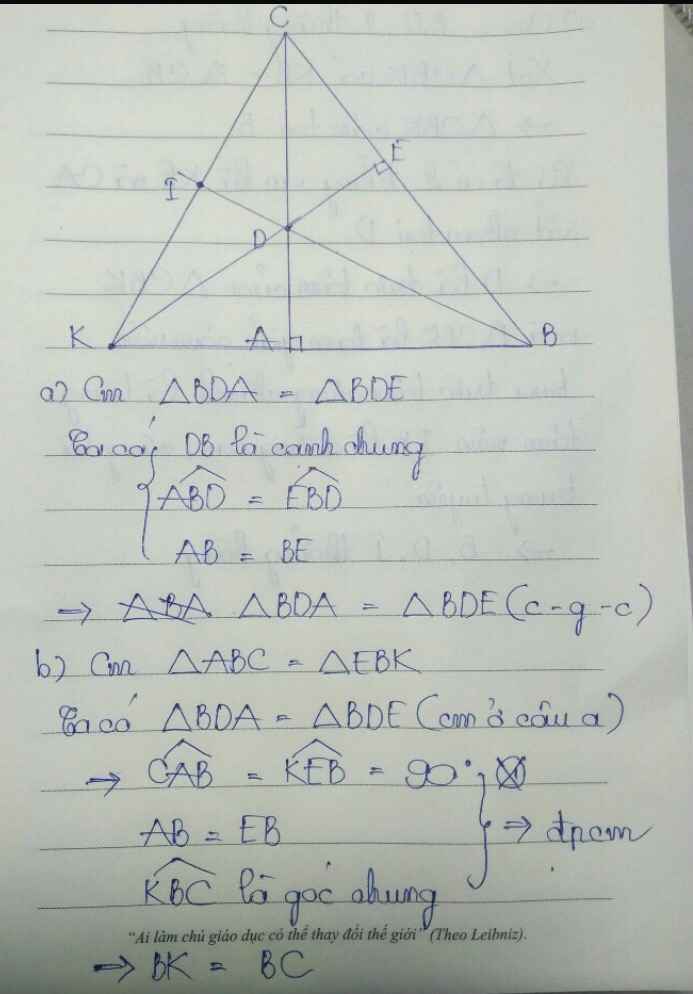 C
E
I
D
K A B
a) Cm △BDA = △BDE
Ta có DB là cạnh chung
ABD = EBD
AB = BE
→ ABA △BDA = △BDE (c-g-c)
b) Cm △ABC = △EBK
Ta có △BDA = △BDE (cm ở câu a)
→ CAB = KEB = 90°
AB = EB ⇒ đpcm
KBC là góc chung
"Ai làm chủ giáo dục có thể thay đổi thế giới" (Theo Leibniz).
⇒ BK = BC